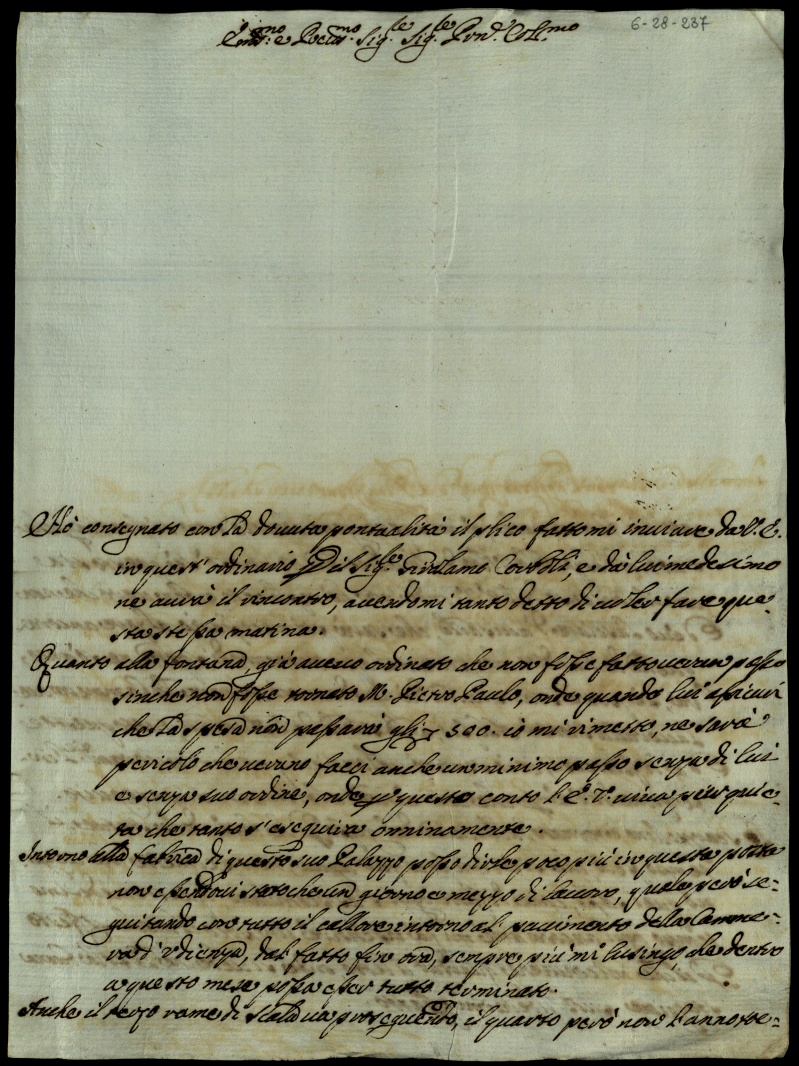 6-28-237
Em.mo e Rev.mo Sig.re Sig.re Pron. Col.mo
Hò consegnato con la douuta pontualità il plico fattomi inuiare da V. E.
in quest'ordinario p il Sig.re Girolamo, e dà lui medesimo
ne auirà il rincontro, auendomi tanto detto di uoler fare que-
sta stessa matina.
Quanto alla fontana, già aueuo ordinato che non fosse fatto uerun passo
sinche non fosse tornato M. Pietro Paulo, onde quando lui assicuri
che la spesa non passarà gli 300. io mi rimetto, ne sarà
pericolo che ueruno facci anche un minimo passo senza di lui
e senza suo ordine, onde p questo conto l'E. V. uiua pur quie-
ta che tanto s'eseguirà onninamente.
Intorno alla fabrica di questo suo Palazzo posso dirle poco più in questa posta
non essendoui stato che un giorno e mezzo di lauoro, quale però se-
guitando con tutto il callore intorno al pauimento della Camme-
ra d'Vdienza, dal fatto fin ora, sempre più mi lusingo, che dentro
a questo mese possa esser tutto terminato.
Anche il terzo rame di scala ua proseguendo, il quarto però non l'anno